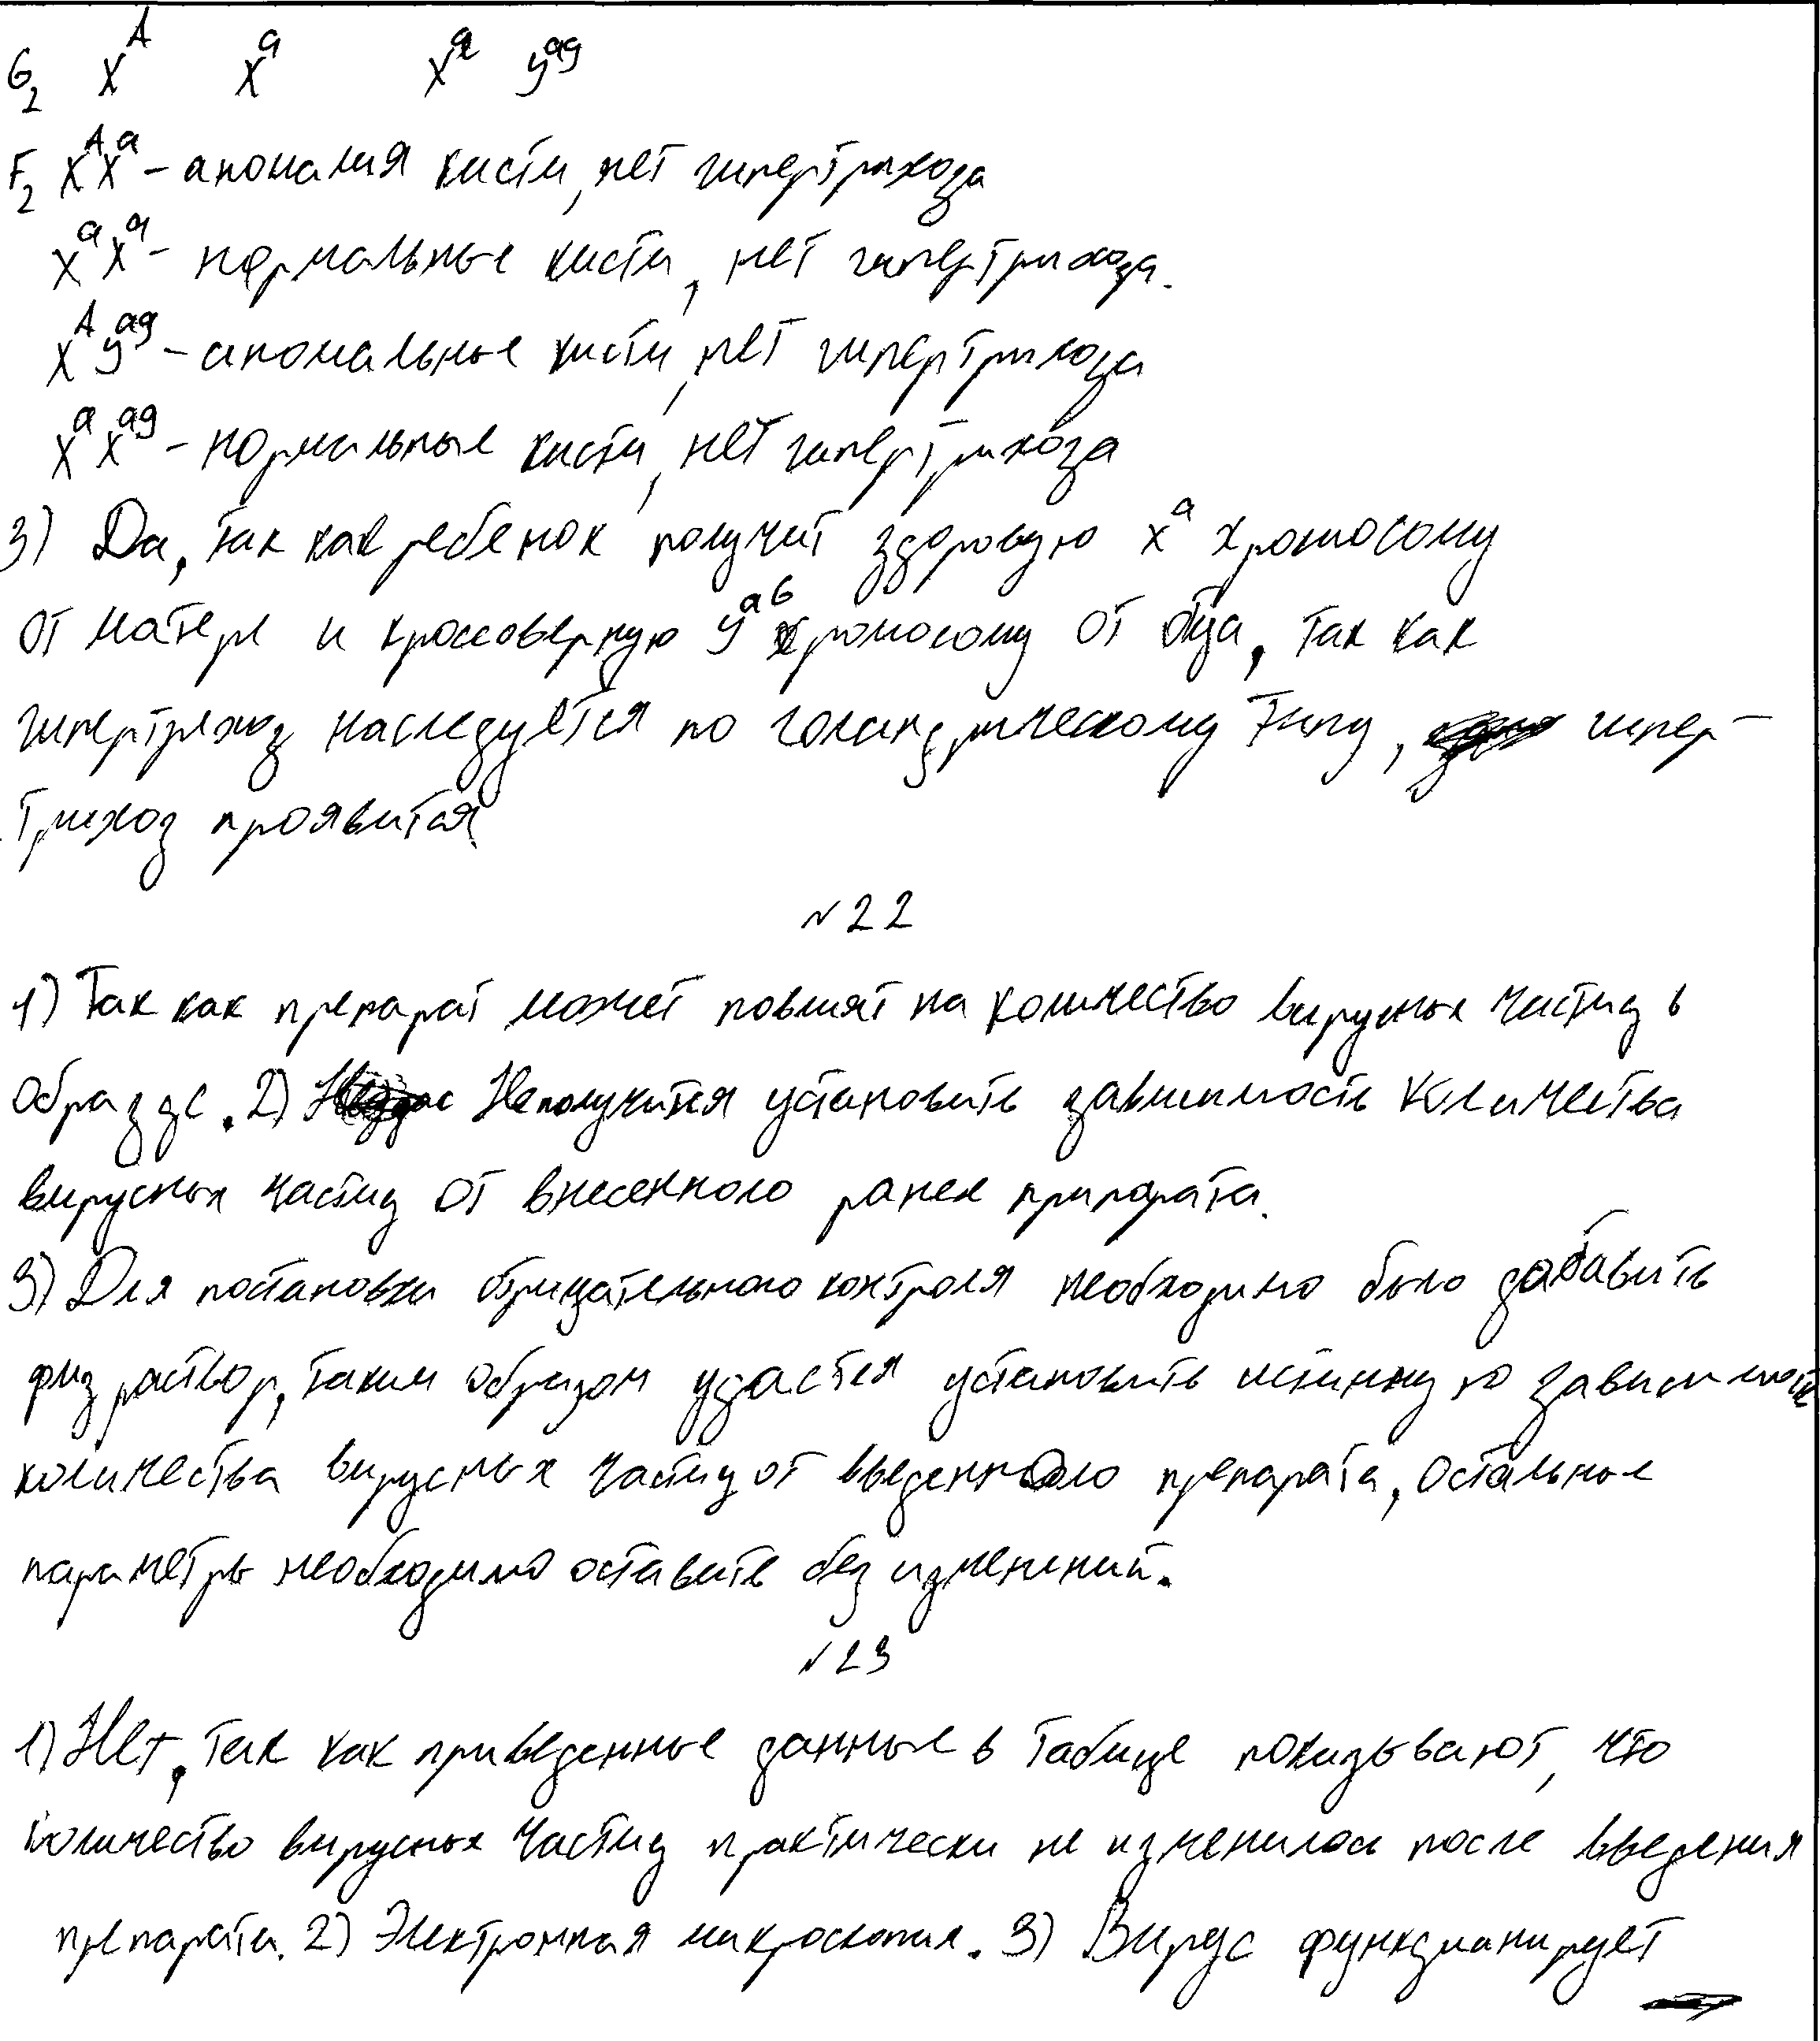 G₂ Xᴬ Xᵃ Xᵃ Yᵃᵍ
F₂ XᴬXᵃ – аномалия кисти, нет гипертрихоза
XᵃXᵃ – нормальные кисти, нет гипертрихоза.
XᴬYᵃᵍ – аномальные кисти, нет гипертрихоза
XᵃXᵃᵍ – нормальные кисти, нет гипертрихоза
3) Да, так как ребенок получит здоровую xᵃ хромосому
от матери и кроссоверную Yᵃᵇ хромосому от отца, так как
гипертрихоз наследуется по голандрическому типу, гипер-
трихоз проявится.
№22
1) Так как препарат может повлият на количество вирусных частиц в
образце. 2) Неполучится установить зависимость количества
вирусных частиц от внесенного ранее припарата.
3) Для постановки отрицательного контроля необходимо было добавить
физ раствор, таким образом удастся установить истинную зависимость
количества вирусных частиц от введенного препарата, остальные
параметры необходимо оставить без изменений.
№23
1) Нет, так как приведенные данные в таблице показывают, что
количество вирусных частиц практически не изменилось после введения
препарата. 2) Электронная микроскопия. 3) Вирус функцианирует